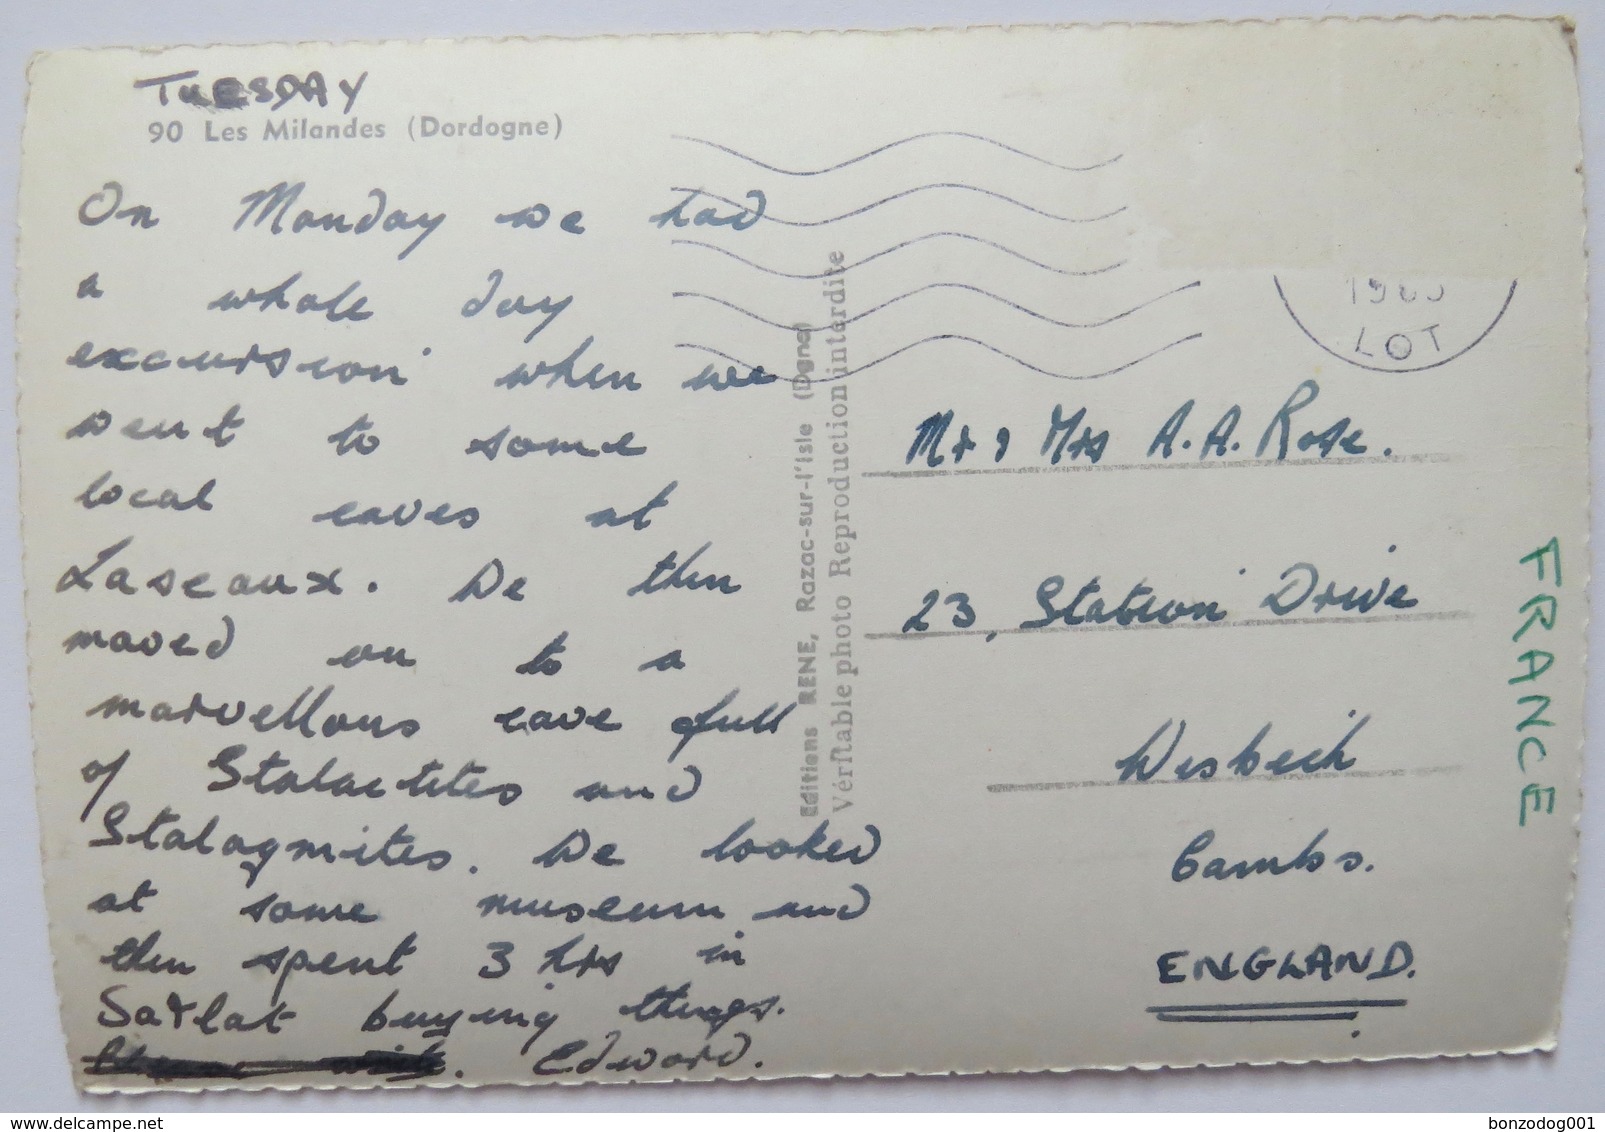 TUESDAY
90 Les Milandes (Dordogne)
On Monday we had
a whole day
excursion when we
went to some
local caves at
Lascaux. We then
moved on to a
marvellous cave full
of Stalactites and
Stalagmites. We looked
at some museum and
then spent 3 hrs in
Sarlat buying things.
Edward.
Editions RENE, Razac-sur-l'Isle (Dgne)
Véritable photo Reproduction interdite
LOT
Mr & Mrs A. A. Rose.
23, Station Drive
Wisbech
Cambs.
ENGLAND.
FRANCE
www.delcampe.net
bonzodog001